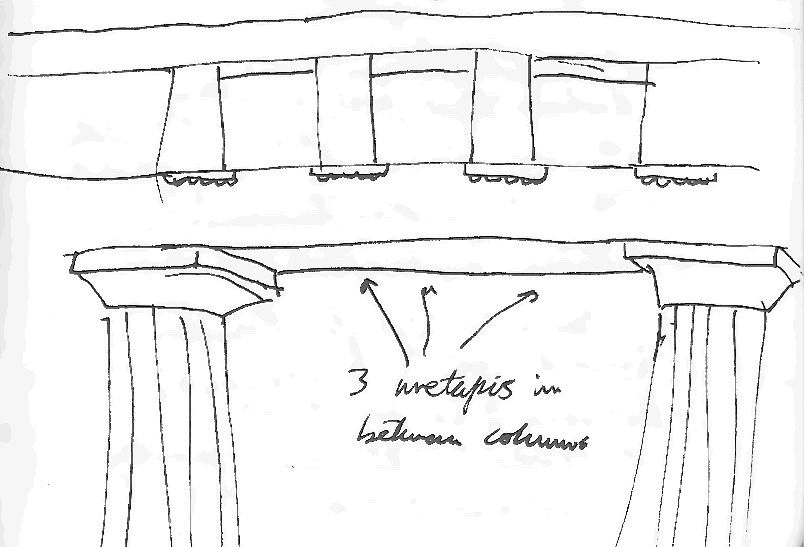 3 metapis in
between columns